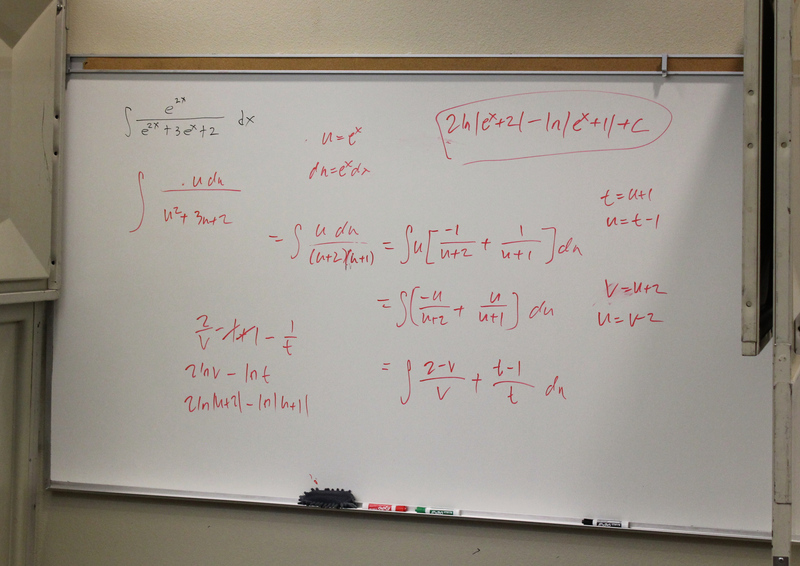 ∫ e^2x / (e^2x + 3e^x + 2) dx
u = e^x
du = e^x dx
2ln|e^x+2| - ln|e^x+1| + C
∫ u du / (u^2 + 3u + 2)
t = u+1
u = t-1
= ∫ u du / (u+2)(u+1) = ∫ u [ -1/(u+2) + 1/(u+1) ] du
= ∫ ( -u/(u+2) + u/(u+1) ) du
V = u+2
u = v-2
= ∫ (2-v)/v + (t-1)/t du
2/v - 1 + 1 - 1/t
2lnv - lnt
2ln|u+2| - ln|u+1|